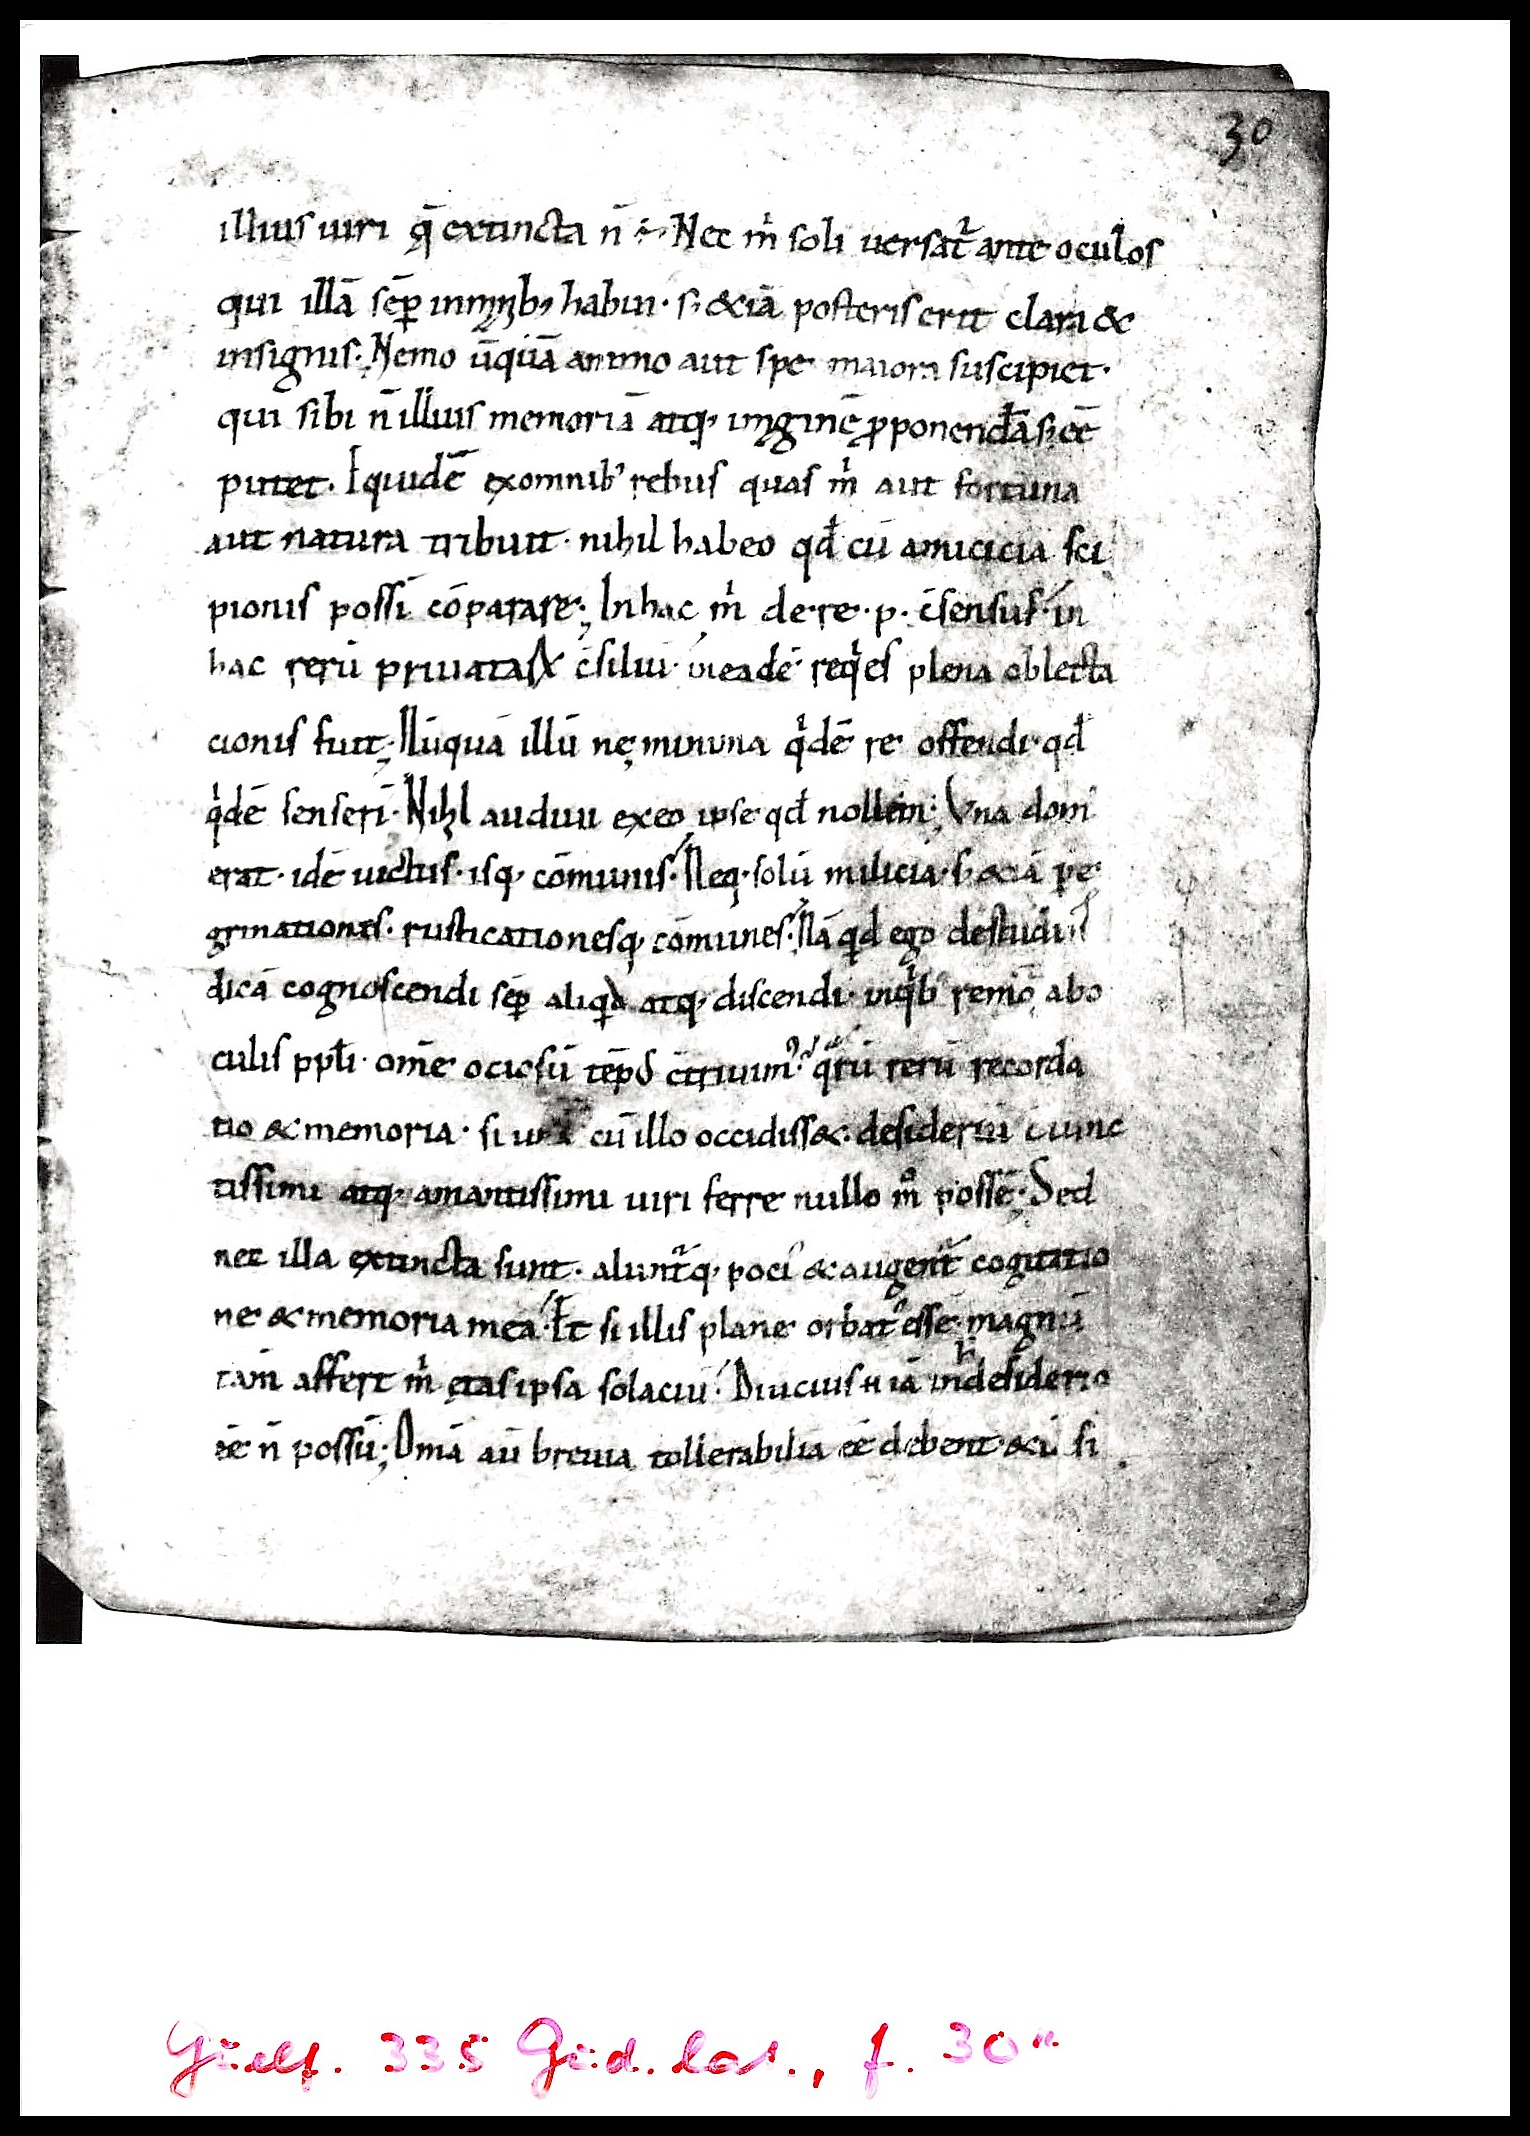 30
illius uiri q̄ extincta n̄ ÷. Nec m̍ soli uersat᷑ ante oculos
qui illā sēp̄ inmanib; habui. s; &iā posteris erit clara &
insignis. Nemo ūquā animo aut spe maiora suscipiet.
qui sibi n̄ illius memoriā atq; imaginē p̄ponendā s; eē
putet. Equidē exomnib; rebus quas m̍ aut fortuna
aut natura tribuit. nihil habeo qd̄ cū amicicia sci
pionis possī cōparare; Inhac m̍ de.re.p. c̄sensus. in
hac rerū priuatax c̄siliū. ineadē req̍es plena oblecta
cionis fuit; Nūquā illū ne minima q̍dē re offendi. qd̄
q̍dē senserī. Nihil audiui exeo ipse qd̄ nollem; Una dom̄
erat. idē uictus. isq; cōmunis. Neq; solū milicia. s; &iā pe
grinationes. rusticationesq; cōmunes. Nā qd̄ ego destudiis
dicā cognoscendi sēp̄ aliqd atq; discendi. inq̍b; remō abo
culis pp̄li. om̄e ociosū tēp; c̄triuim; q̄rū rerū recorda
tio & memoria. si una cū illo occidiss&. desideriū iunc
tissimi atq; amantissimi uiri ferre nullo m̊ possē. Sed
nec illa extincta sunt. alunt᷑q; poci; & augent᷑ cogitatio
ne & memoria mea. Et si illis plane orbat; essē magnū
tam̄ affert m̍ ętas ipsa solaciū. Diucius n̄ iā in h̍ desiderio
eē n̄ possū; Om̄a aū breuia tollerabilia eē debent. &ī si
Guelf. 335 Gud. lat., f. 30ʳ